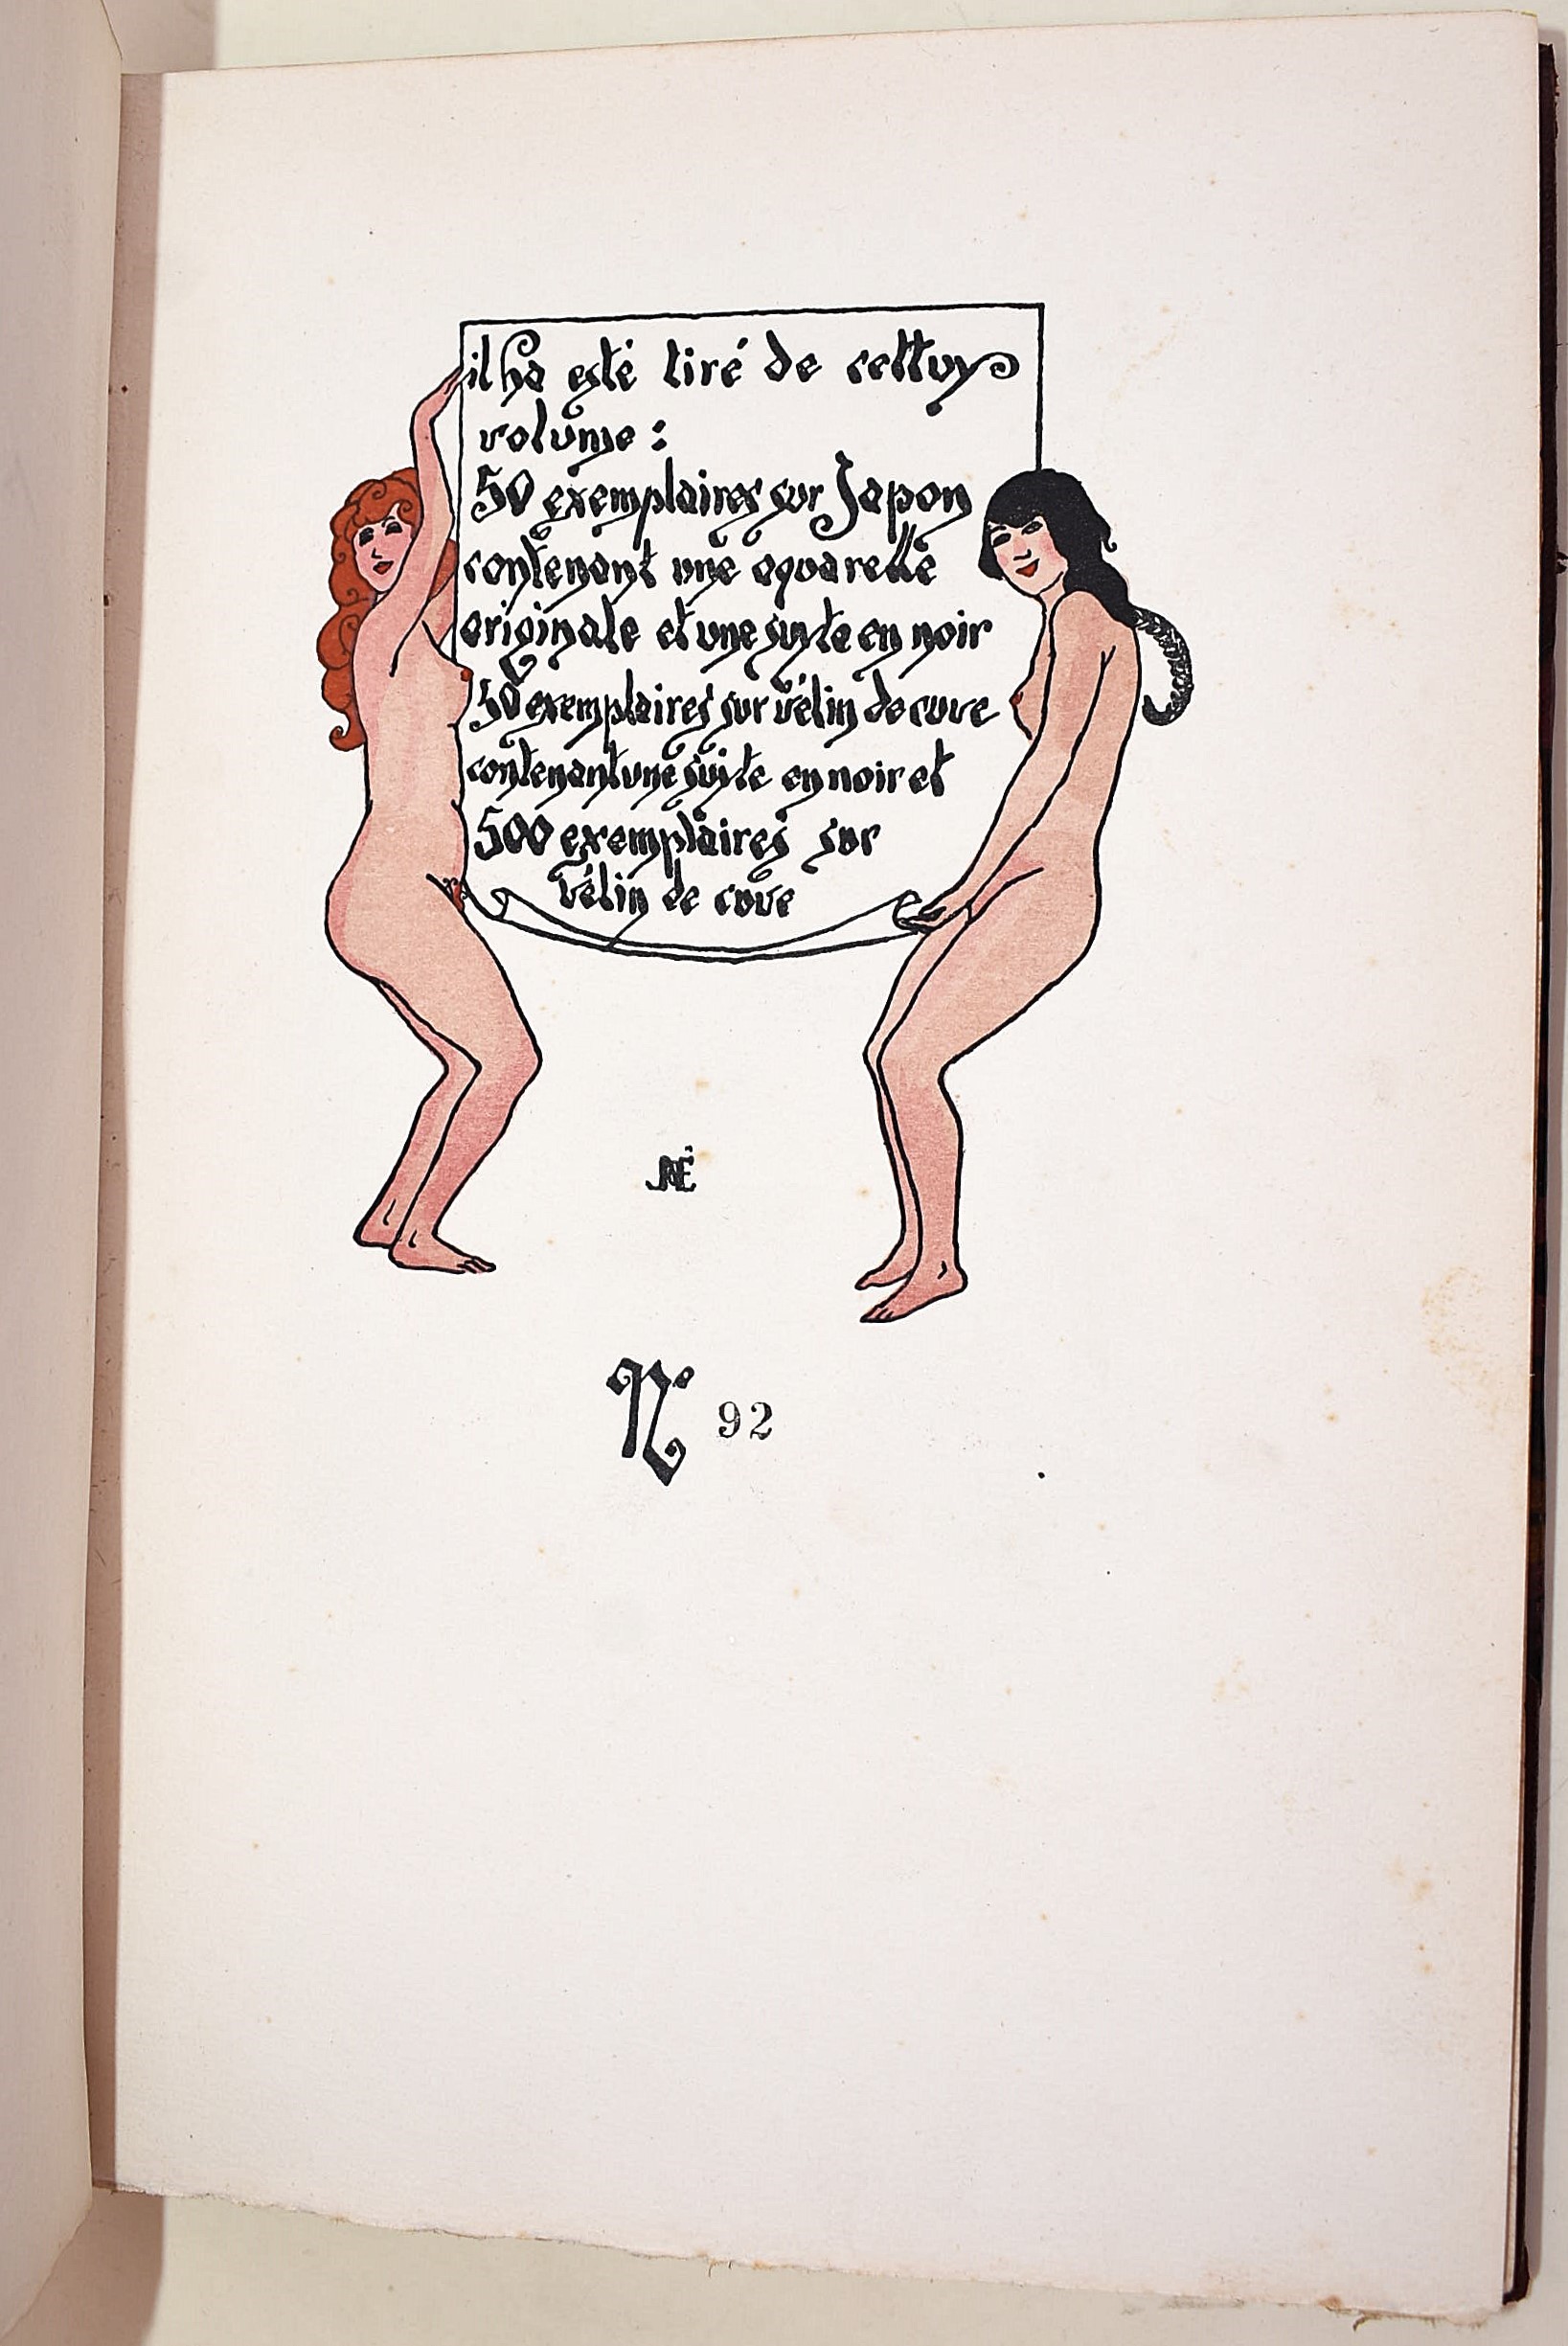 il ha esté tiré de cettuy
volume :
50 exemplaires sur Japon
contenant une aquarelle
originale et une suyte en noir
50 exemplaires sur vélin de cuve
contenant une suyte en noir et
500 exemplaires sur
vélin de cuve
N° 92